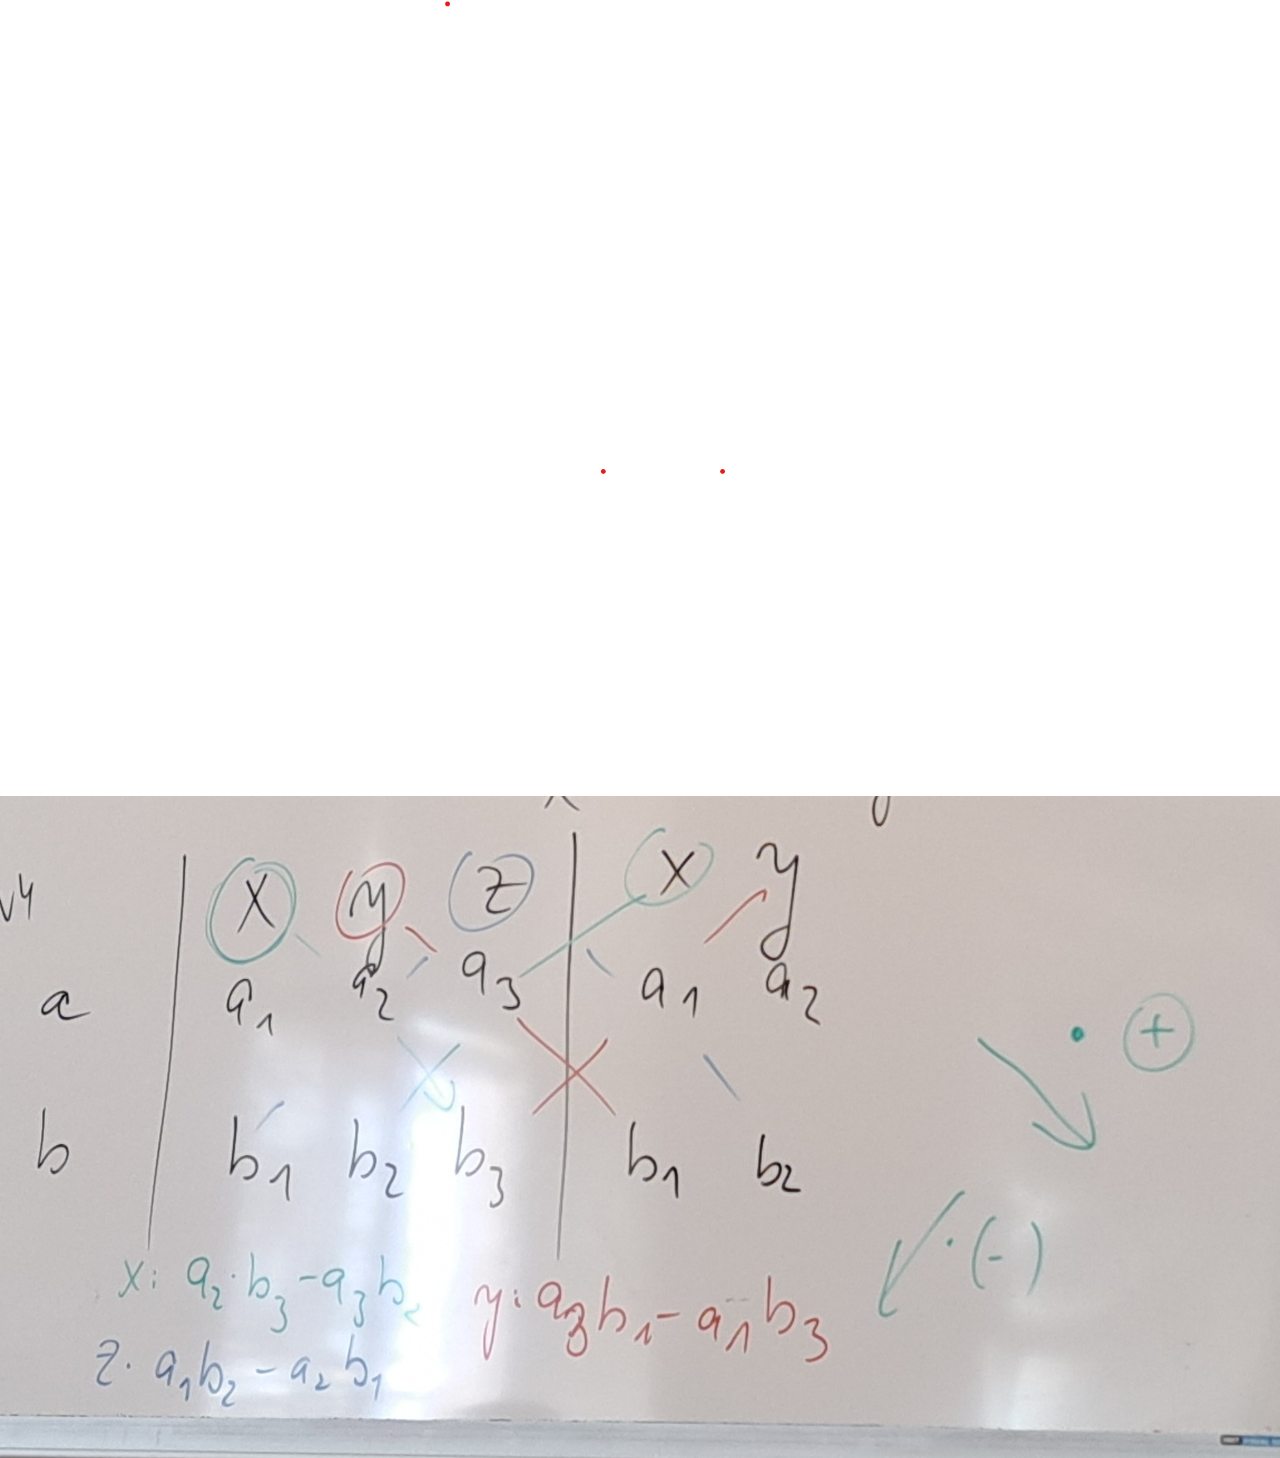 x y z x y
a a₁ a₂ a₃ a₁ a₂
b b₁ b₂ b₃ b₁ b₂
· +
· (-)
x: a₂·b₃-a₃b₂
y: a₃b₁-a₁b₃
z· a₁b₂-a₂b₁